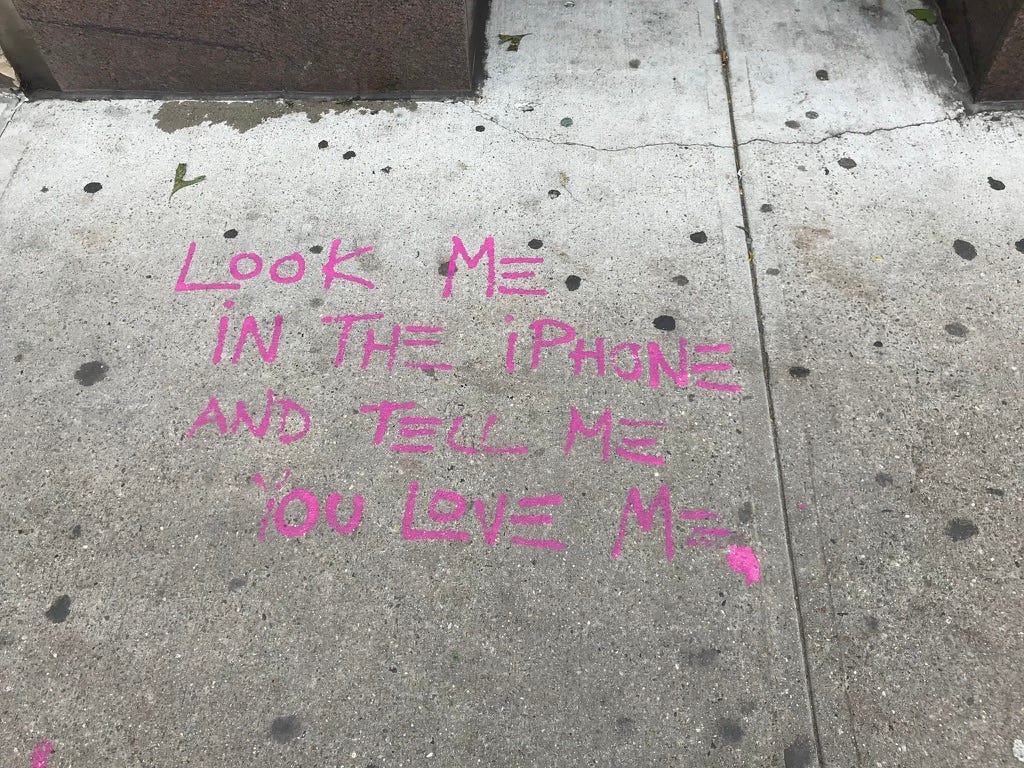 LOOK ME
iN THE iPHONE
AND TELL ME
YOU LOVE ME